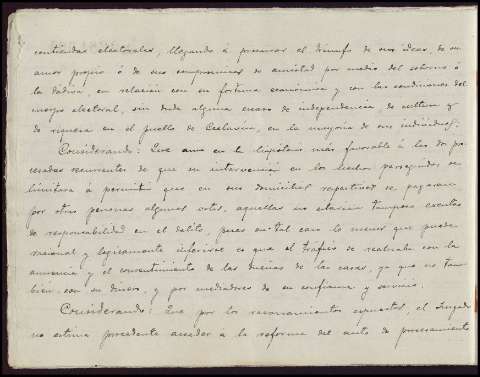 contiendas electorales, llegando á procurar el triunfo de sus ideas, de su
amor propio ó de sus compromisos de amistad por medio del soborno ó
la dádiva, en relación con su fortuna económica y con las condiciones del
cuerpo electoral, sin duda alguna escaso de independencia, de cultura y
de riqueza en el pueblo de Ceclavín, en la mayoría de sus individuos:
Considerando: Que aun en la hipótesis más favorable á las dos pro
cesadas recurrentes de que su intervención en los hechos perseguidos se
limitara á permitir que en sus domicilios respectivos se pagaran
por otras personas algunos votos, aquellas no estarían tampoco exentas
de responsabilidad en el delito, pues en tal caso lo menos que puede
racional y lógicamente inferirse es que el tráfico se realizaba con la
anuencia y el consentimiento de las dueñas de las casas, ya que no tam
bién con su dinero, y por mediadores de su confianza y servicio.
Considerando: Que por los razonamientos expuestos, el Juzgado
no estima procedente acceder a la reforma del auto de procesamiento